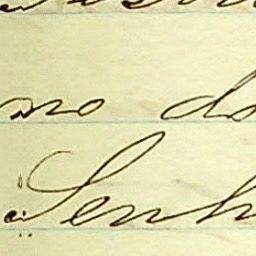 no do
Senh